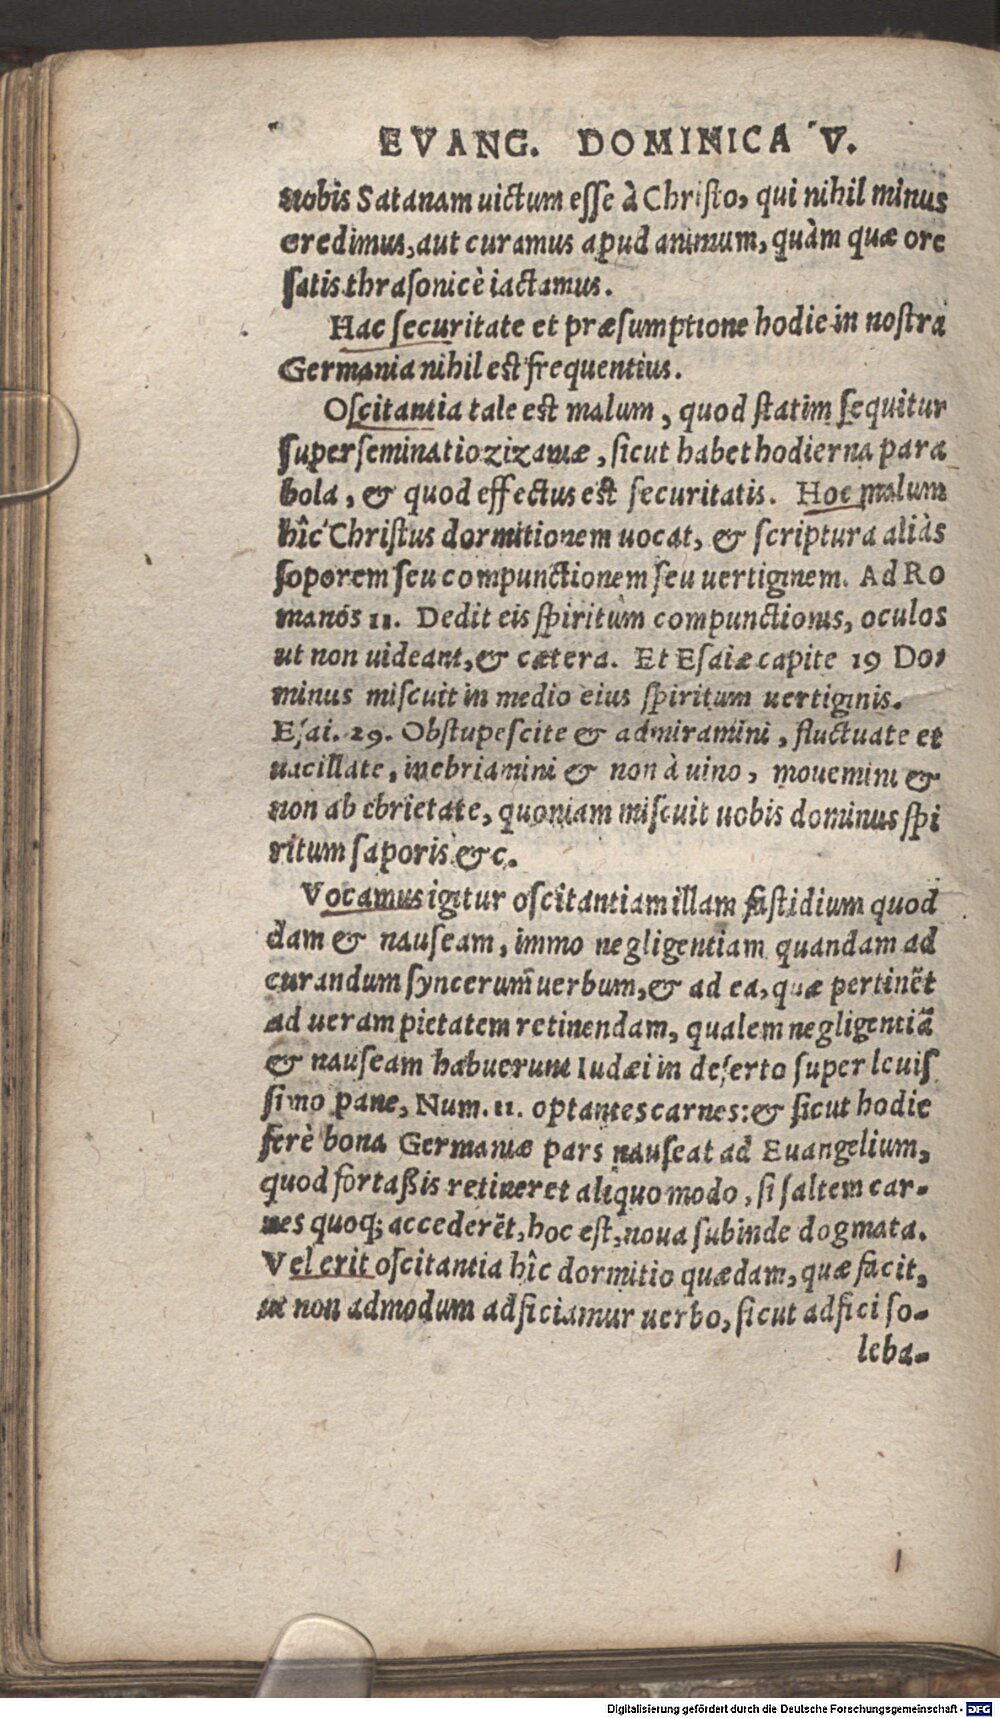 EVANG. DOMINICA V.
nobis Satanam uictum esse à Christo, qui nihil minus
credimus, aut curamus apud animum, quàm quæ ore
satis thrasonicè iactamus.
Hac securitate et præsumptione hodie in nostra
Germania nihil est frequentius.
Oscitantia tale est malum, quod statim sequitur
superseminatio zizaniæ, sicut habet hodierna para
bola, & quod effectus est securitatis. Hoc malum
hîc Christus dormitionem uocat, & scriptura aliàs
soporem seu compunctionem seu uertiginem. Ad Ro
manos 11. Dedit eis spiritum compunctionis, oculos
ut non uideant, & cætera. Et Esaiæ capite 19 Do-
minus miscuit in medio eius spiritum uertiginis.
Esai. 29. Obstupescite & admiramini, fluctuate et
uacillate, inebriamini & non à uino, mouemini &
non ab ebrietate, quoniam miscuit uobis dominus spi
ritum saporis &c.
Vocamus igitur oscitantiam illam fastidium quod
dam & nauseam, immo negligentiam quandam ad
curandum syncerum uerbum, & ad ea, quæ pertinẽt
ad ueram pietatem retinendam, qualem negligentiã
& nauseam habuerunt Iudæi in deserto super leuis
simo pane, Num. 11. optantes carnes: & sicut hodie
ferè bona Germaniæ pars nauseat ad Euangelium,
quod fortaßis retineret aliquo modo, si saltem car-
nes quoq; accederẽt, hoc est, noua subinde dogmata.
Vel erit oscitantia hîc dormitio quædam, quæ facit,
ut non admodum adficiamur uerbo, sicut adfici so-
leba-
Digitalisierung gefördert durch die Deutsche Forschungsgemeinschaft - DFG